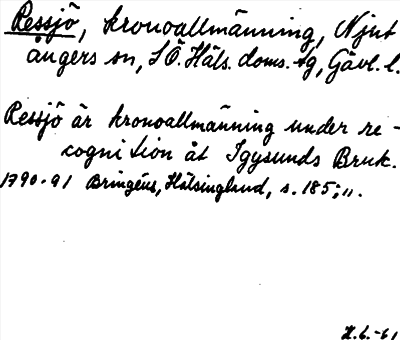 Ressjö, kronoallmänning, Njut
ångers sn, SÖ. Häls. doms. tg, Gävl. l.
Ressjö är kronoallmänning under re-
cognition åt Iggysunds Bruk.
1790-91 Bringéus, Hälsingland, s. 185; ".
H.b.-61